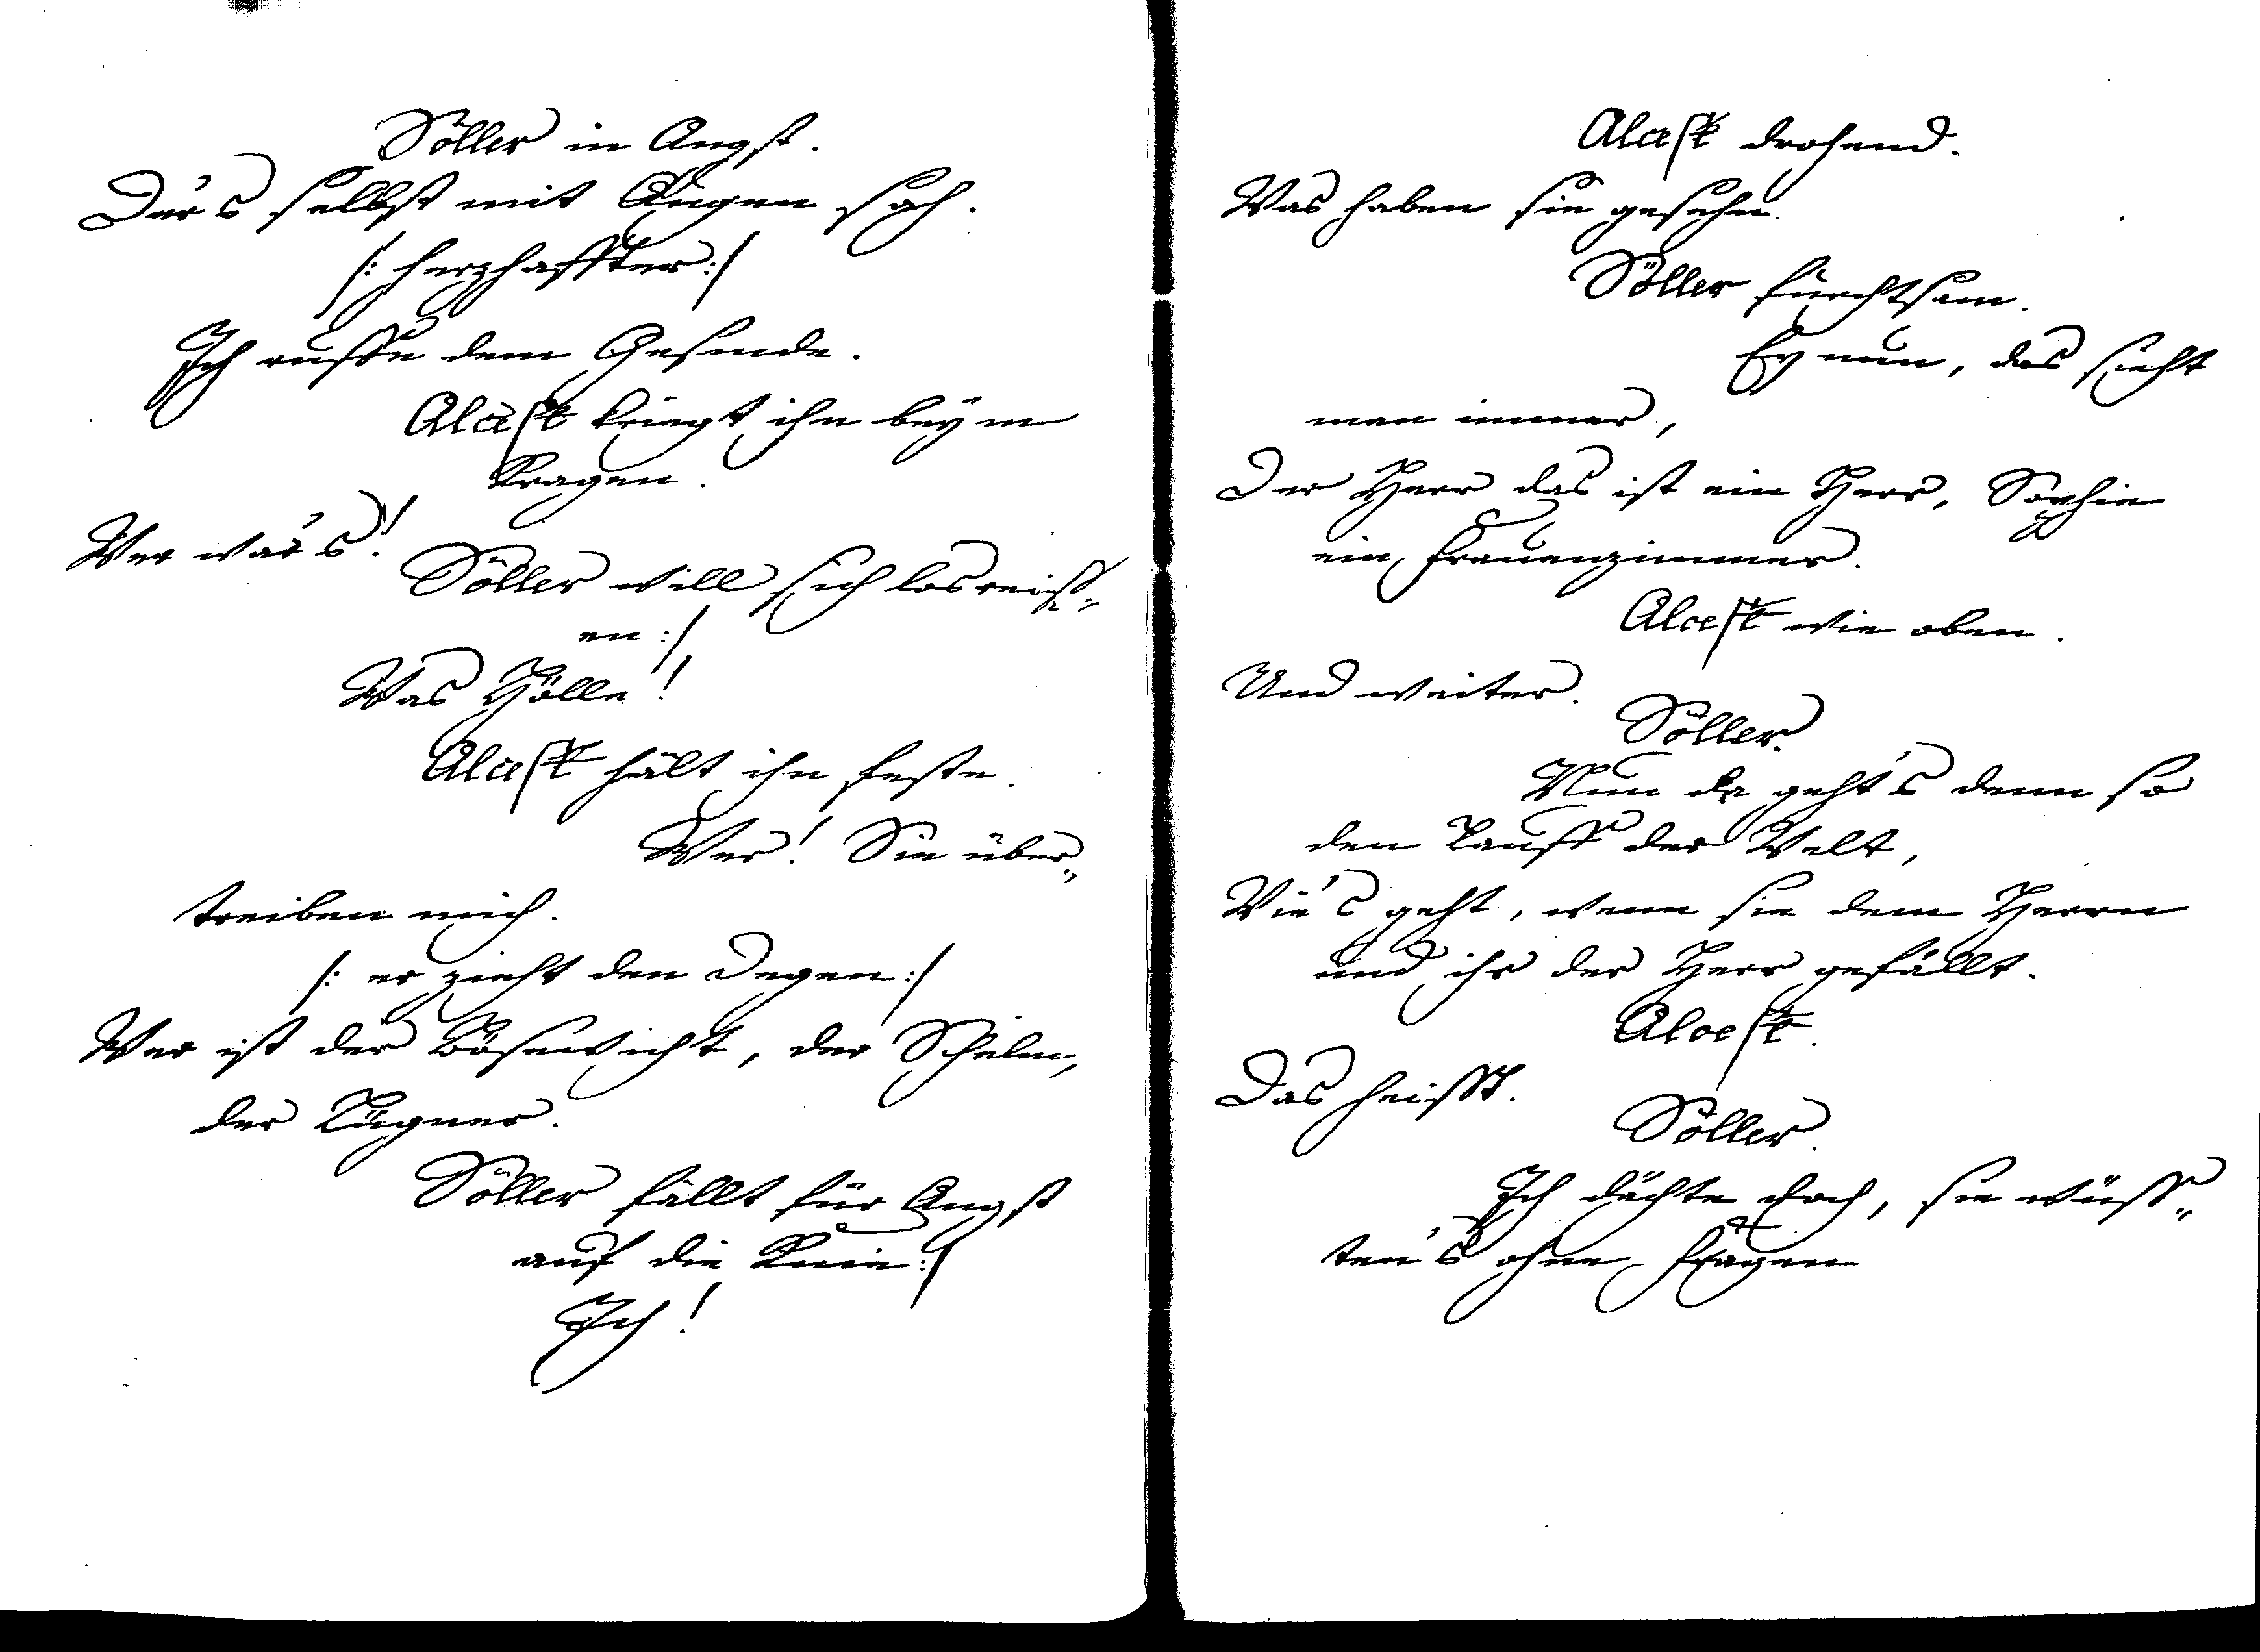 Söller in Angst.
Der's selbst mit Augen sah.
/: herzhaffter :/
Ich ruffe dem Gesinde.
Alcest kriegt ihn beym
Kragen.
Wer war's!
Söller will sich losreiss„
en :/
Was Hölle!
Alcest hält ihn feste.
Wer! Sie über„
treiben mich.
/: er zieht den Degen :/
Wer ist der Bösewicht, der Schelm,
der Lügner.
Söller fällt für Angst
auf die Knie :/
Ich!
Alcest drohend.
Was haben sie gesehn.
Söller furchtsam.
Ey nun, das sieht
man immer,
Der Herr das ist ein Herr, Sophie
ein Frauenzimmer.
Alcest wie oben.
Und weiter.
Söller.
Nun da geht's denn so
den Lauff der Welt,
Wie's geht, wenn sie dem Herrn
und ihr der Herr gefällt.
Alcest.
Das heisst.
Söller.
Ich dächte doch, sie wüss„
ten's ohne Fragen